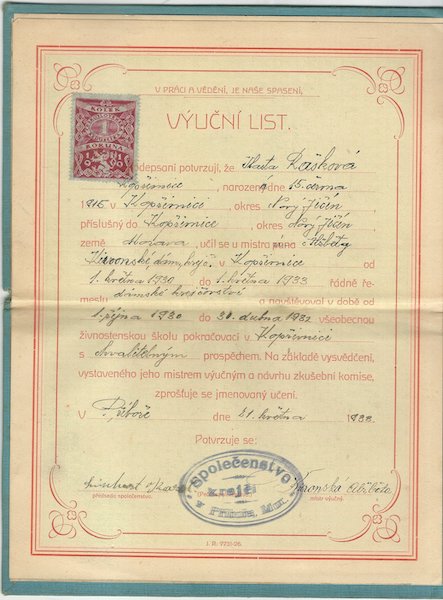 V PRÁCI A VĚDĚNÍ, JE NAŠE SPASENÍ.
VÝUČNÍ LIST.
KOLEK
1
KORUNA
depsaní potvrzují, že Marta Rašková
Kopřivnice, narozená dne 15. června
1915 v Kopřivnici, okres Nový Jičín
příslušný do Kopřivnice, okres Nový Jičín,
země Morava, učil se u mistra pana Alžběty
Vavronské, dám. krejč. v Kopřivnici od
1. května 1930 do 1. května 1933 řádně ře-
meslu dámské krejčovství a navštěvoval v době od
1. října 1930 do 30. dubna 1932 všeobecnou
živnostenskou školu pokračovací v Kopřivnici
s chvalitebným prospěchem. Na základě vysvědčení,
vystaveného jeho mistrem výučným a návrhu zkušební komise,
zprošťuje se jmenovaný učení.
v Příboře dne 21. května 1933.
Potvrzuje se:
Společenstvo
krejčí
v Příboře, Mor.
předseda společenstva.
mistr výučný.
J. R. 7731-26.